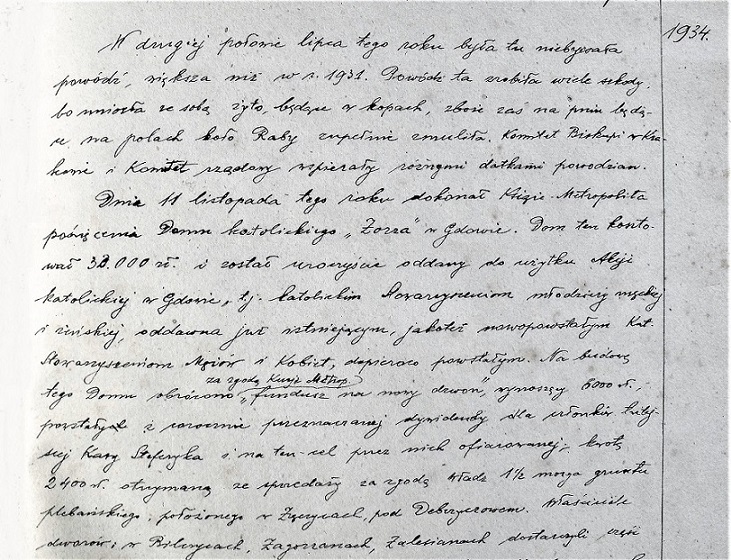 1934.
W drugiej połowie lipca tego roku była tu niebywała
powódź, większa niż w r. 1931. Powódź ta zrobiła wiele szkody,
bo uniosła ze sobą żyto, będące w kopach, zboże zaś na pniu będą-
ce, na polach koło Raby zupełnie zmuliła. Komitet Biskupi w Kra-
kowie i Komitet rządowy wspierały różnymi datkami powodzian.
Dnia 11 listopada tego roku dokonał Książe-Metropolita
poświęcenia Domu katolickiego „Zorza” w Gdowie. Dom ten koszto-
wał 32.000 zł. i został uroczyście oddany do użytku Akcji
katolickiej w Gdowie, t.j. katolickim Stowarzyszeniom młodzieży męskiej
i żeńskiej, oddawna już istniejącym, jakoteż nowopowstałym Kat.
Stowarzyszeniom Mężów i Kobiet, dopieroco powstałym. Na budowę
za zgodą Kurji Metrop.
tego Domu obrócono „fundusz na nowy dzwon”, wynoszący 6000 zł.,
powstały z corocznie przeznaczanej dywidendy dla członków tutej-
szej Kasy Stefczyka i na ten cel przez nich ofiarowanej, kwotę
2400 zł. otrzymaną ze sprzedaży za zgodą władz 1½ morga gruntu
plebańskiego, położonego w Zręczycach, pod Dobczycami. Właściciele
dworów: w Bilczycach, Zagórzanach, Zalesianach dostarczyli część